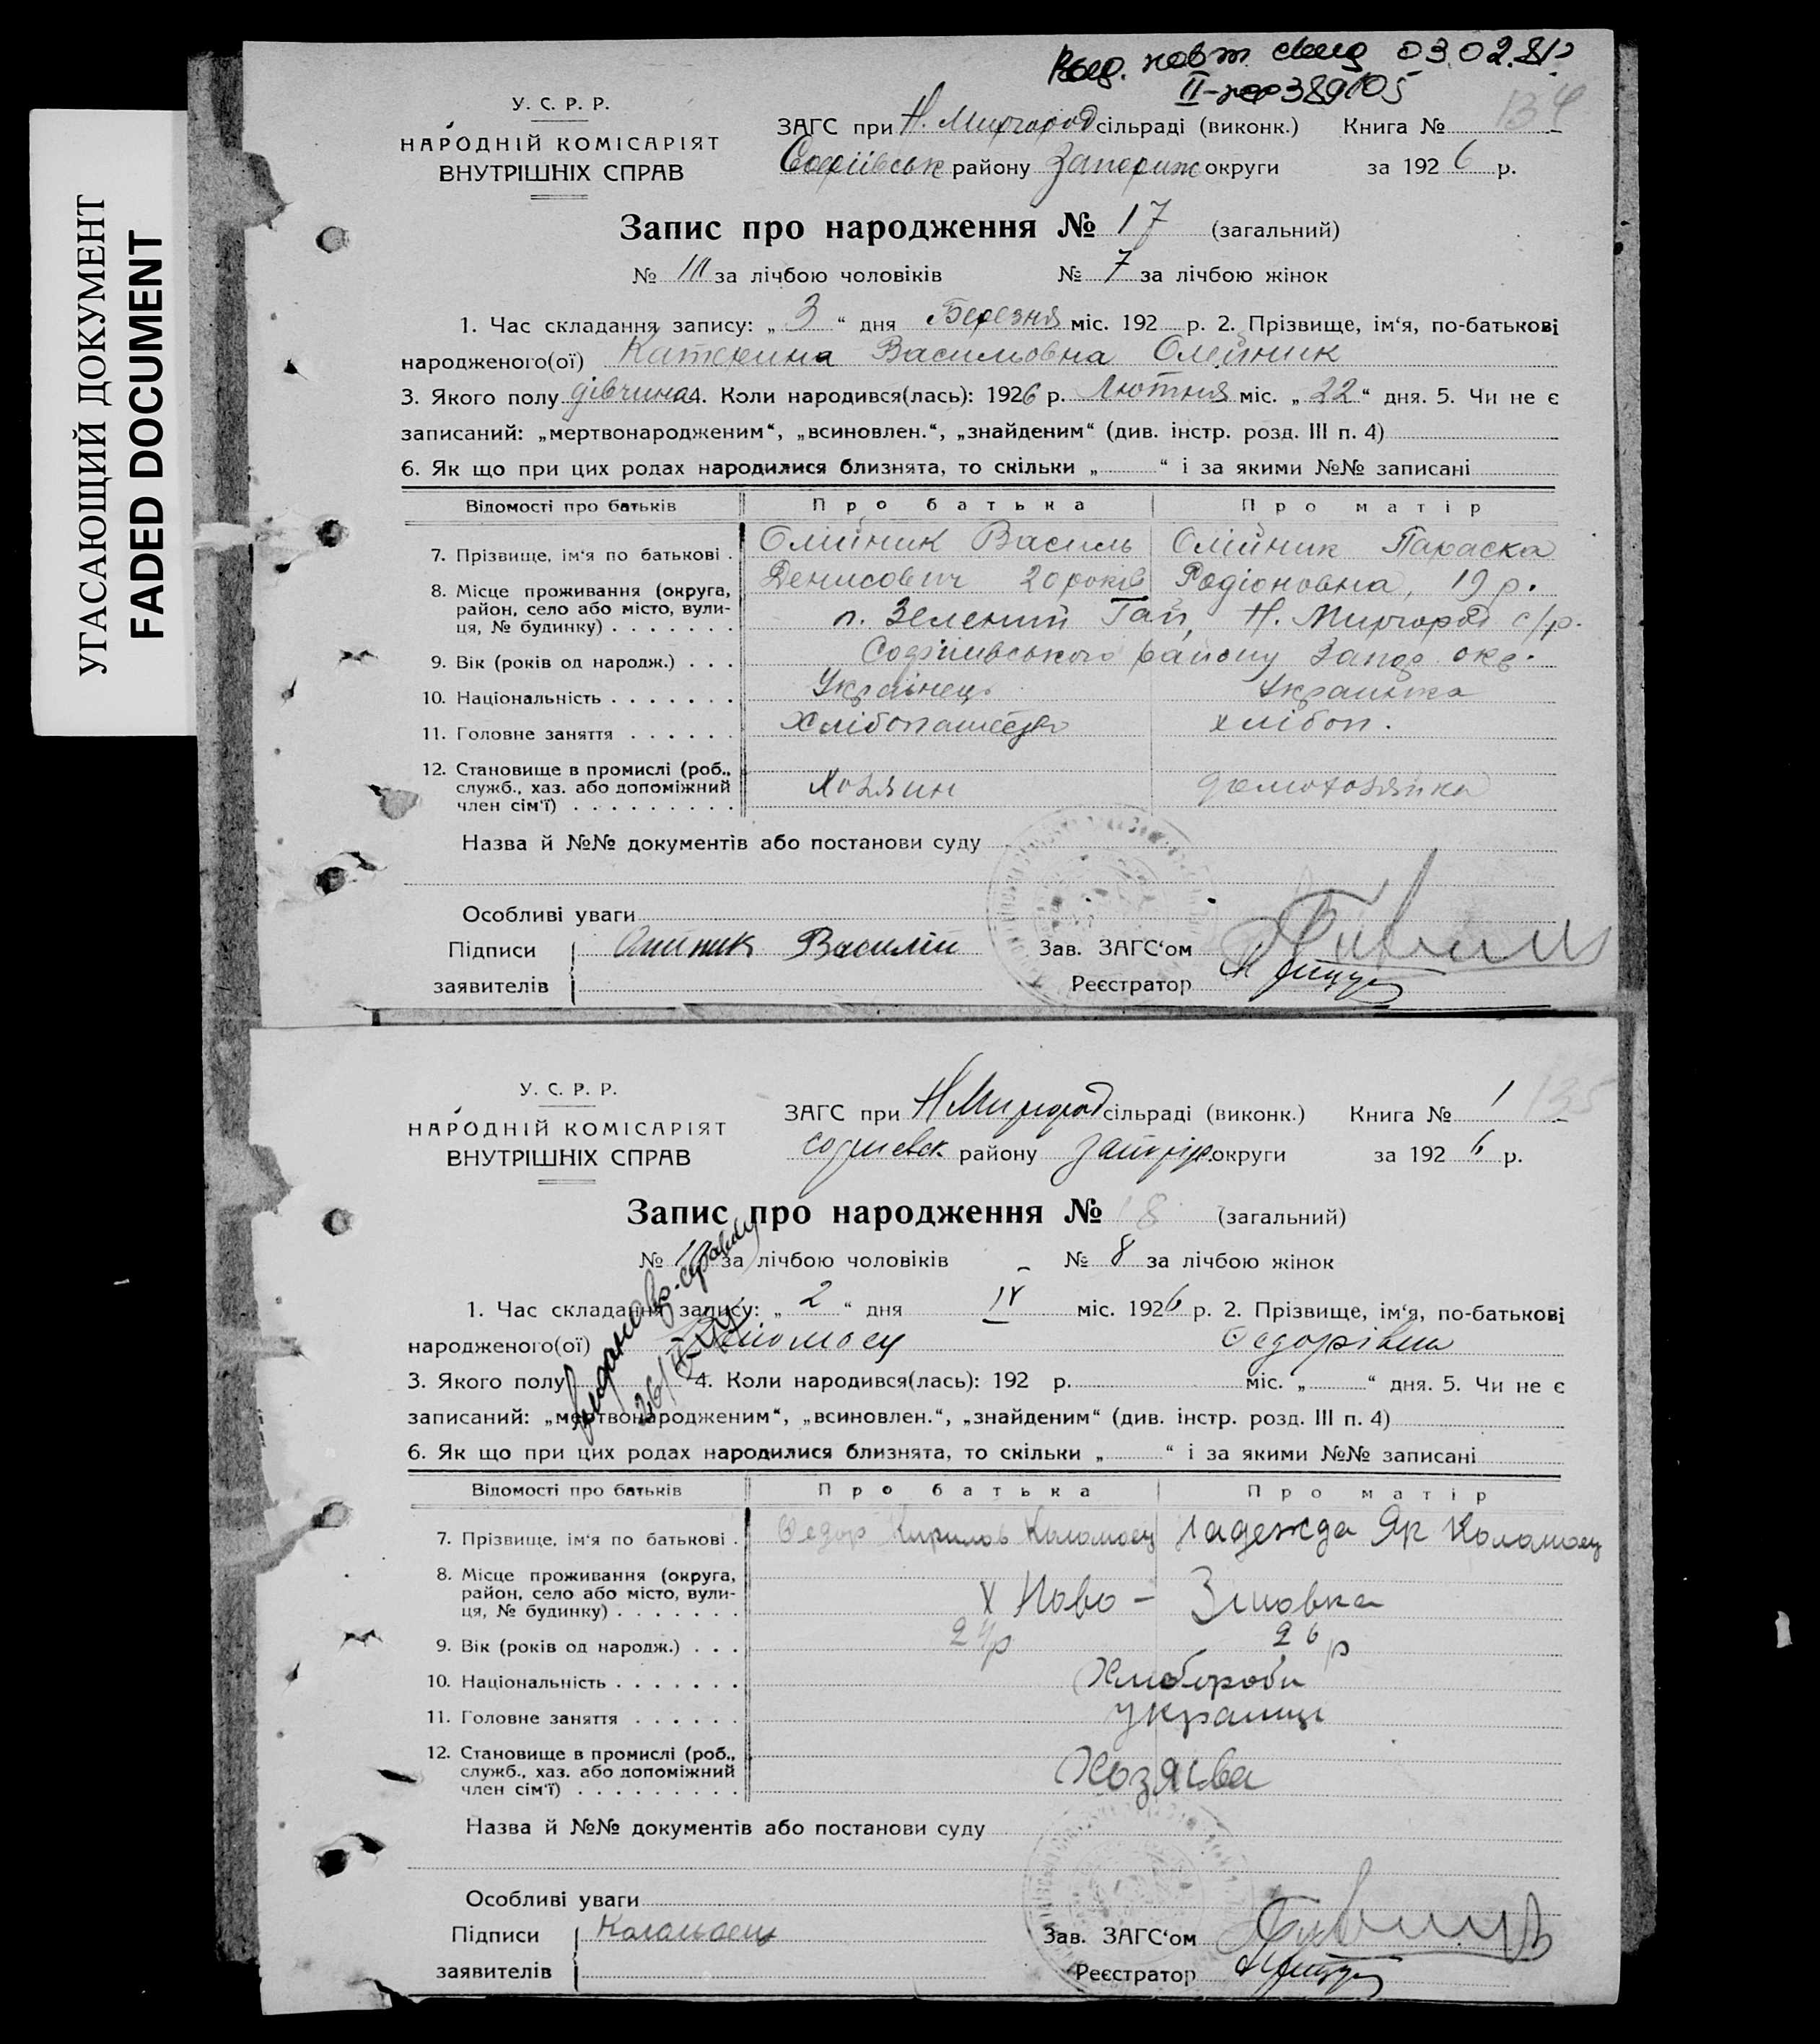 УГАСАЮЩИЙ ДОКУМЕНТ
FADED DOCUMENT
Выд. повт. свид 03.02.81г
389105
У. С. Р. Р.
НАРОДНІЙ КОМІСАРІЯТ
ВНУТРІШНІХ СПРАВ
ЗАГС при Н. Миргород сільраді (виконк.) Книга № 134
Софіївськ району Запориж округи за 1926 р.
Запис про народження № 17 (загальний)
№ 10 за лічбою чоловіків № 7 за лічбою жінок
1. Час складання запису: „ 3 “ дня Березня міс. 192 р. 2. Прізвище, ім‘я, по-батькові
народженого(ої) Катерина Васильовна Олейник
3. Якого полу дівчина 4. Коли народився(лась): 1926 р. Лютня міс. „ 22 “ дня. 5. Чи не є
записаний: „мертвонародженим“, „всиновлен.“, „знайденим“ (див. інстр. розд. III п. 4)
6. Як що при цих родах народилися близнята, то скільки „ “ і за якими №№ записані
Відомості про батьків Про батька Про матір
7. Прізвище, ім‘я по батькові . Олійник Василь Олійник Параска
Денисович 20 років Родіоновна, 19 р.
8. Місце проживання (округа,
район, село або місто, вули-
ця, № будинку) . . . . . . . п. Зелений Гай, Н. Миргород с/р.
Софиивського району Запор. окр.
9. Вік (років од народж.) . . .
10. Національність . . . . . . . Українець Украинка
11. Головне заняття . . . . . . Хлібопашество хлібоп.
12. Становище в промислі (роб.,
служб., хаз. або допоміжний
член сім‘ї) . . . . . . . . . Хозяин домохозяйка
Назва й №№ документів або постанови суду
Особливі уваги
Підписи Олийник Василий Зав. ЗАГС‘ом
заявителів Реєстратор
У. С. Р. Р.
НАРОДНІЙ КОМІСАРІЯТ
ВНУТРІШНІХ СПРАВ
ЗАГС при Н Миргород сільраді (виконк.) Книга № 1 135
району округи за 1926 р.
Запис про народження № 18 (загальний)
№ за лічбою чоловіків № 8 за лічбою жінок
1. Час складання запису: „ 2 “ дня IV міс. 1926 р. 2. Прізвище, ім‘я, по-батькові
народженого(ої) Федорівна
3. Якого полу 4. Коли народився(лась): 192 р. міс. „ “ дня. 5. Чи не є
записаний: „мертвонародженим“, „всиновлен.“, „знайденим“ (див. інстр. розд. III п. 4)
6. Як що при цих родах народилися близнята, то скільки „ “ і за якими №№ записані
Відомості про батьків Про батька Про матір
7. Прізвище, ім‘я по батькові . Федор Кирилов Коломоец Надежда Як Коломоец
8. Місце проживання (округа,
район, село або місто, вули-
ця, № будинку) . . . . . . . х Ново-
9. Вік (років од народж.) . . . 24 р 26 р
10. Національність . . . . . . . Хлибороби
11. Головне заняття . . . . . . украинци
12. Становище в промислі (роб.,
служб., хаз. або допоміжний
член сім‘ї) . . . . . . . . . Хозяева
Назва й №№ документів або постанови суду
Особливі уваги
Підписи Коломоец Зав. ЗАГС‘ом
заявителів Реєстратор